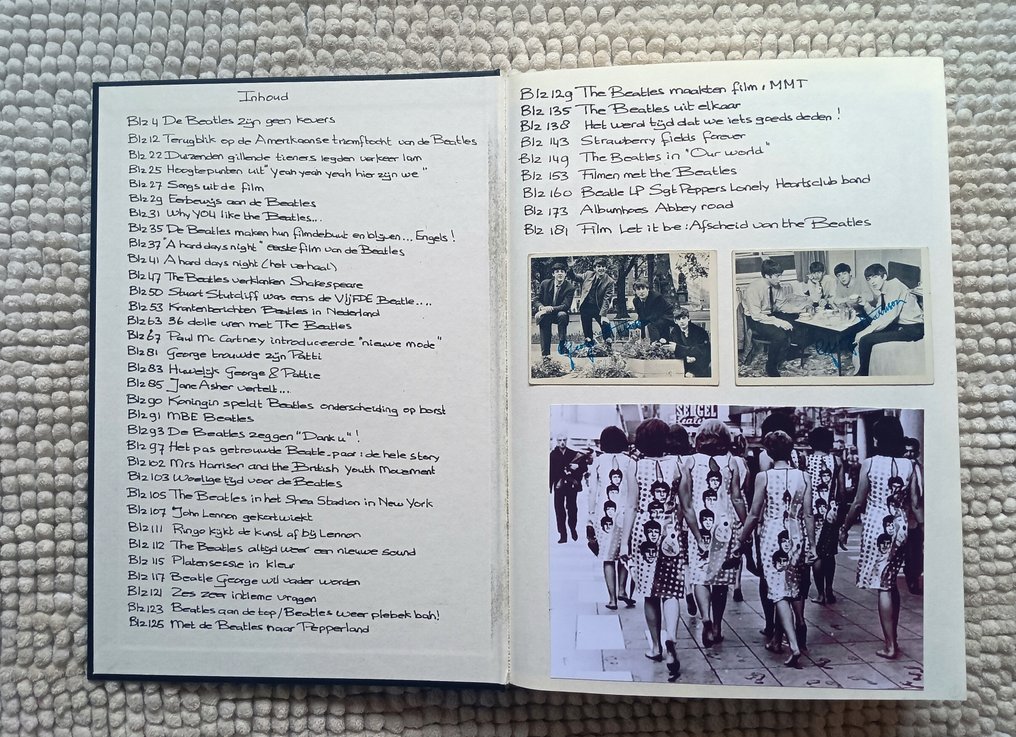 Inhoud
Blz 4 De Beatles zijn geen kevers
Blz 12 Terugblik op de Amerikaanse triomftocht van de Beatles
Blz 22 Duizenden gillende tieners legden verkeer lam
Blz 25 Hoogtepunten uit "Yeah yeah yeah hier zijn we"
Blz 27 Songs uit de film
Blz 29 Eerbewijs aan de Beatles
Blz 31 Why YOU like the Beatles...
Blz 35 De Beatles maken hun filmdebuut en blijven... Engels!
Blz 37 "A hard days night" eerste film van de Beatles
Blz 41 A hard days night (het verhaal)
Blz 47 The Beatles verklanken Shakespeare
Blz 50 Stuart Stutcliff was eens de VIJFDE Beatle....
Blz 53 Krantenberichten Beatles in Nederland
Blz 63 36 dolle uren met The Beatles
Blz 67 Paul Mc Cartney introduceerde "nieuwe mode"
Blz 81 George trouwde zijn Patti
Blz 83 Huwelijk George & Pattie
Blz 85 Jane Asher vertelt...
Blz 90 Koningin speldt Beatles onderscheiding op borst
Blz 91 MBE Beatles
Blz 93 De Beatles zeggen "Dank u"!
Blz 97 Het pas getrouwde Beatle-paar: de hele story
Blz 102 Mrs Harrison and the British Youth Movement
Blz 103 Woelige tijd voor de Beatles
Blz 105 The Beatles in het Shea Stadion in New York
Blz 107 John Lennon gekortwiekt
Blz 111 Ringo kijkt de kunst af bij Lennon
Blz 112 The Beatles altijd weer een nieuwe sound
Blz 115 Platensessie in kleur
Blz 117 Beatle George wil vader worden
Blz 121 Zes zeer intieme vragen
Blz 123 Beatles aan de top / Beatles weer plebek bah!
Blz 125 Met de Beatles naar Pepperland
Blz 129 The Beatles maakten film, MMT
Blz 135 The Beatles uit elkaar
Blz 138 Het werd tijd dat we iets goeds deden!
Blz 143 Strawberry fields forever
Blz 149 The Beatles in "Our world"
Blz 153 Filmen met the Beatles
Blz 160 Beatle LP Sgt Peppers Lonely Heartsclub band
Blz 173 Albumhoes Abbey road
Blz 181 Film Let it be: Afscheid van the Beatles
George Harrison
George Harrison
SERGEL